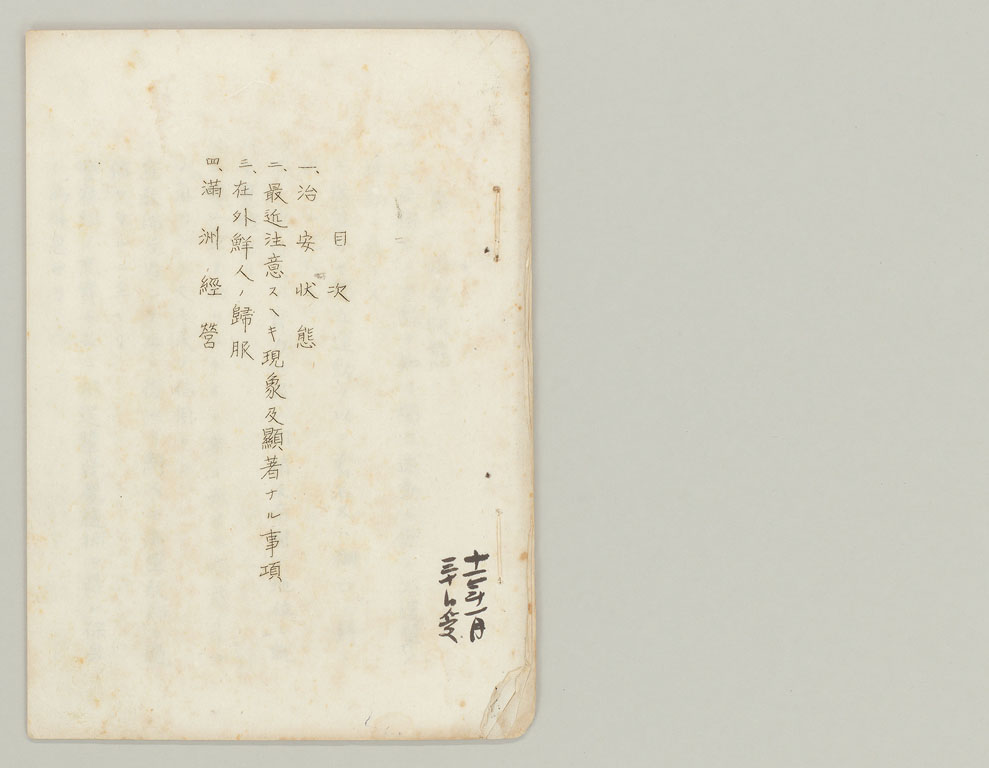 十二年一月
三十日受
目次
一、治安状態
二、最近注意スヘキ現象及顯著ナル事項
三、在外鮮人ノ歸服
四、滿洲經營